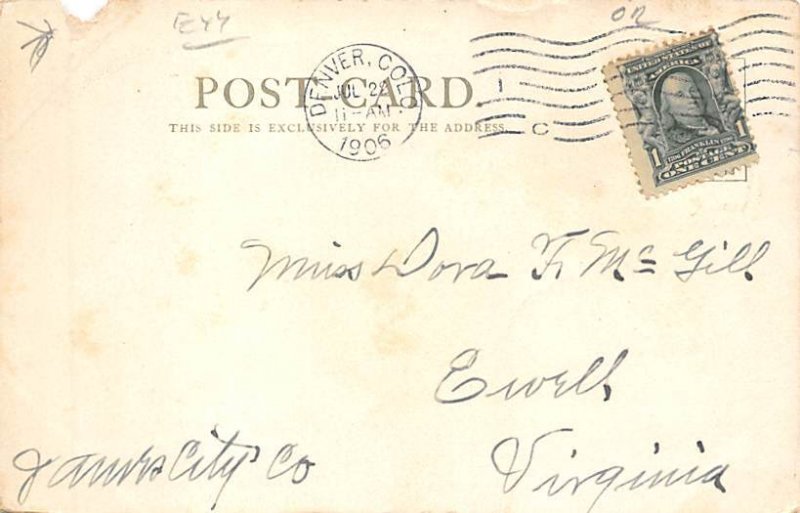 E44
OR
POST CARD.
THIS SIDE IS EXCLUSIVELY FOR THE ADDRESS.
DENVER, COLO.
JUL 22
11-AM
1906
1 C
UNITED STATES OF
AMERICA
1706 FRANKLIN 1790
1 POSTAGE 1
ONE CENT
Miss Dora F. Mc Gill
Ewell,
James City Co
Virginia